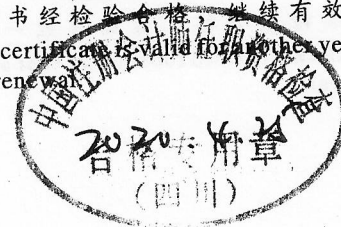 书经检验合格，继续有效
certificate is valid for another ye
renewal.
中国注册会计师任职资格检查
2020.4.
合格专用章
（四川）